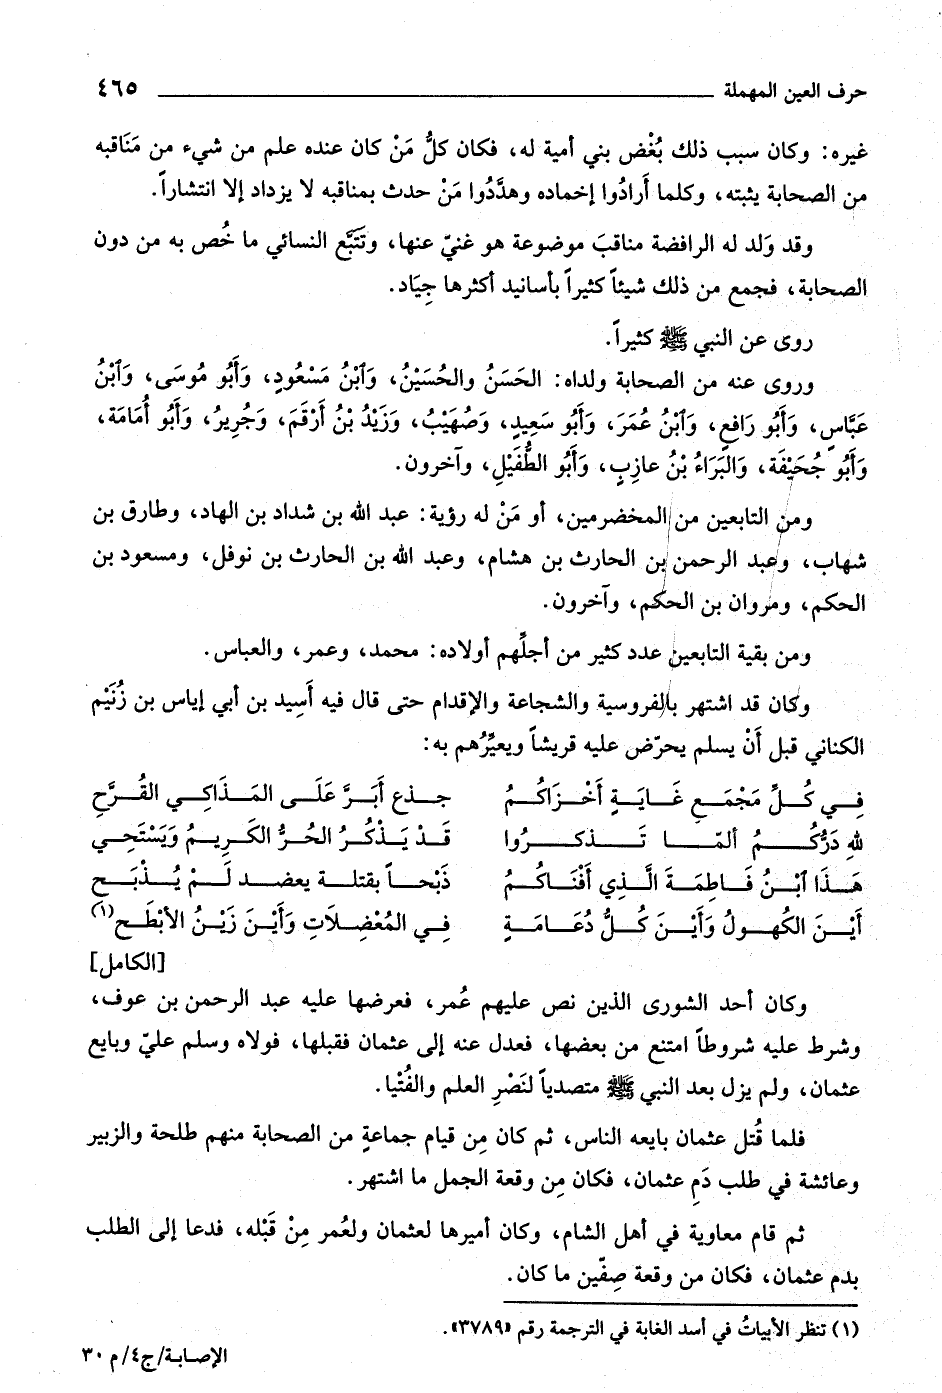 حرف العين المهملة ٤٦٥
غيره: وكان سبب ذلك بُغْض بني أمية له، فكان كلُّ مَنْ كان عنده علم من شيء من مَنَاقبه
من الصحابة يثبته، وكلما أَرادُوا إخماده وهدَّدُوا مَنْ حدث بمناقبه لا يزداد إلا انتشاراً.
وقد وَلد له الرافضة مناقبَ موضوعة هو غنيّ عنها، وتَتَبَّع النسائي ما خُص به من دون
الصحابة، فجمع من ذلك شيئاً كثيراً بأسانيد أكثرها جِيَاد.
روى عن النبي ﷺ كثيراً.
وروى عنه من الصحابة ولداه: الحَسَنُ والحُسَيْنُ، وَٱبْنُ مَسْعُودٍ، وَأَبُو مُوسَى، وَٱبْنُ
عَبَّاسٍ، وَأَبُو رَافِعٍ، وَٱبْنُ عُمَرَ، وَأَبُو سَعِيدٍ، وَصُهَيْبُ، وَزَيْدُ بْنُ أَرْقَمَ، وَجُرِيرُ، وَأَبُو أُمَامَة،
وَأَبُو جُحَيْفَة، وَالبَرَاءُ بْنُ عازِبٍ، وَأَبُو الطُّفَيْلِ، وآخرون.
ومن التابعين من المخضرمين، أو مَنْ له رؤية: عبد الله بن شداد بن الهاد، وطارق بن
شهاب، وعبد الرحمن بن الحارث بن هشام، وعبد الله بن الحارث بن نوفل، ومسعود بن
الحكم، ومروان بن الحكم، وآخرون.
ومن بقية التابعين عدد كثير من أجلِّهم أولاده: محمد، وعمر، والعباس.
وكان قد اشتهر بالفروسية والشجاعة والإقدام حتى قال فيه أَسِيد بن أبي إياس بن زُنَيْم
الكناني قبل أَنْ يسلم يحرّض عليه قريشاً ويعيِّرُهم به:
فِي كُلِّ مَجْمَعِ غَايَةٍ أَخْزَاكُمُ جذع أَبَرَّ عَلَى المَذَاكِي القُرَّحِ
للهِ دَرُّكُمُ ألمّا تَذكرُوا قَدْ يَذْكُرُ الحُرُّ الكَرِيمُ وَيَسْتَحِي
هَذَا ٱبْنُ فَاطِمَةَ الَّذِي أَفْنَاكُمُ ذَبْحاً بقتلة يعضد لَمْ يُذْبَحِ
أَيْنَ الكُهولُ وَأَيْنَ كُلُّ دُعَامَةٍ فِي المُعْضِلاَتِ وَأَيْنَ زَيْنُ الأَبْطَحِ(١)
[الكامل]
وكان أحد الشورى الذين نص عليهم عُمر، فعرضها عليه عبد الرحمن بن عوف،
وشرط عليه شروطاً امتنع من بعضها، فعدل عنه إلى عثمان فقبلها، فولاه وسلم عليّ وبايع
عثمان، ولم يزل بعد النبي ﷺ متصدياً لنَصْرِ العلم والفُتْيا.
فلما قُتل عثمان بايعه الناس، ثم كان مِن قيام جماعةٍ من الصحابة منهم طلحة والزبير
وعائشة في طلب دَمِ عثمان، فكان مِن وقعة الجمل ما اشتهر.
ثم قام معاوية في أهل الشام، وكان أميرها لعثمان ولعُمر مِنْ قَبْله، فدعا إلى الطلب
بدم عثمان، فكان من وقعة صِفّين ما كان.
(١) تنظر الأبياتُ في أسد الغابة في الترجمة رقم «٣٧٨٩».
الإصابة/ج٤/م ٣٠